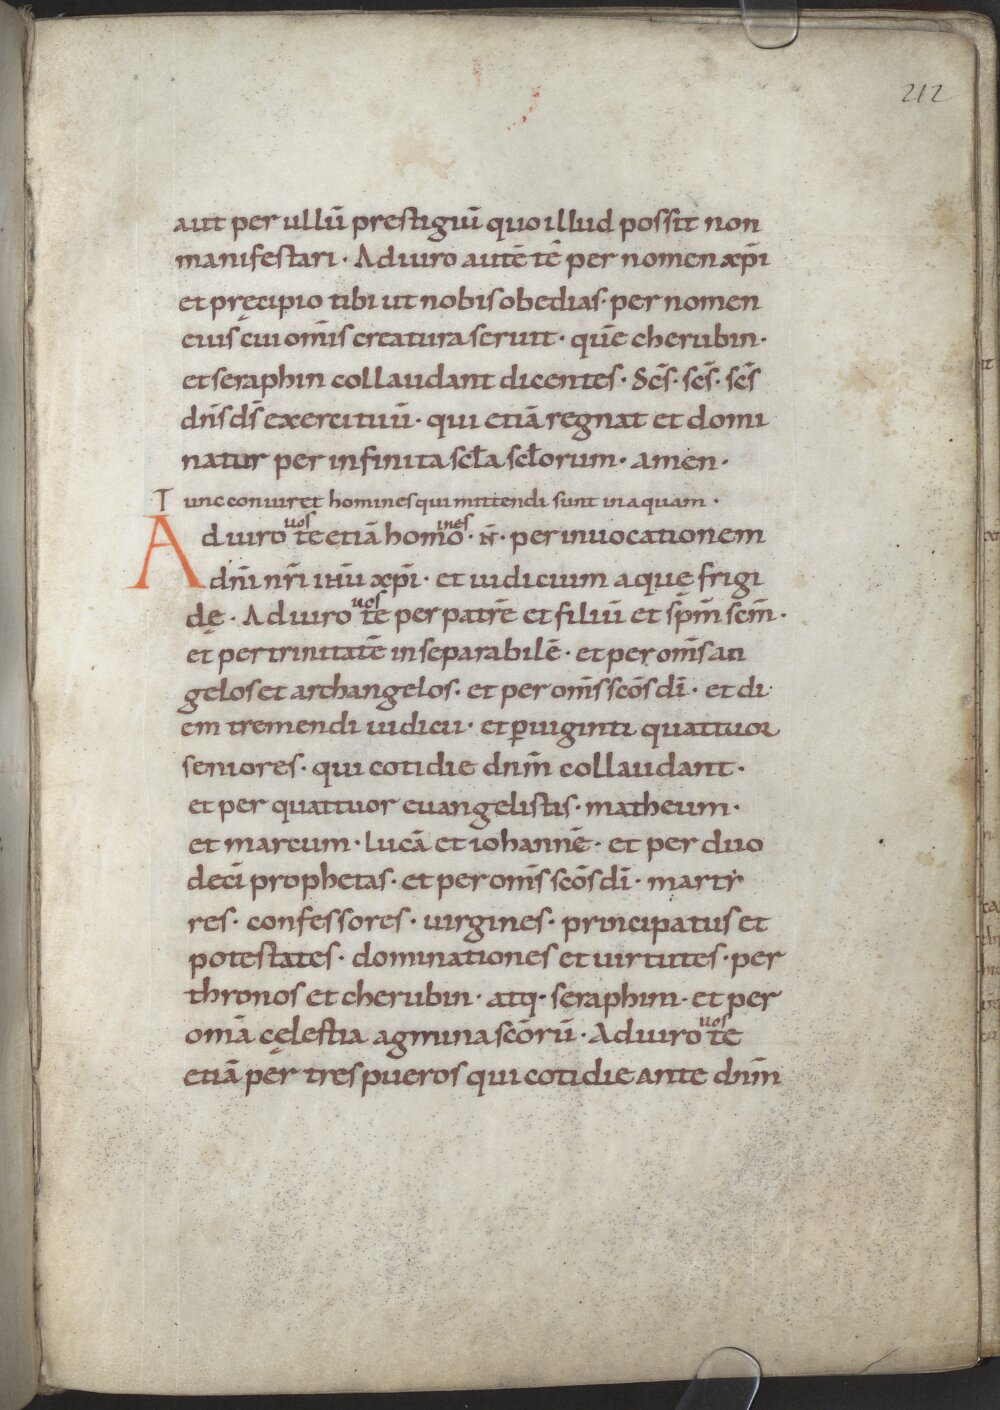 212
aut per ullū prestigiū quo illud possit non
manifestari · Adiuro autē tē per nomen xp̄i
et pręcipio tibi ut nobis obedias · per nomen
eius cui om̄is creatura seruit · quē cherubin ·
et seraphin collaudant dicentes · Sc̄s · sc̄s · sc̄s
dn̄s ds̄ exercituū · qui etiā regnat et domi
natur per infinita sc̄la sc̄lorum · amen ·
Tunc coniuret homines qui mittendi sunt in aquam ·
uos ines
Adiuro te etiā homo · N̄ · per inuocationem
dn̄i nr̄i ihū xp̄i · et iudicium aque frigi
uos
dę · Adiuro te per patrē et filiū et sp̄m sc̄m ·
et per trinitatē inseparabilē · et per om̄s an
gelos et archangelos · et per om̄s scōs dī · et di
em tremendi iudicii · et ꝑ uiginti quattuor
seniores · qui cotidie dn̄m collaudant ·
et per quattuor euangelistis · matheum ·
et marcum · lucā et iohannē · et per duo
decī prophetas · et per om̄s scōs dī · marty
res · confessores · uirgines · principatus et
potestates · dominationes et uirtutes · per
thronos et cherubin · atq· seraphim · et per
omā cęlestia agmina scōrū · Adiuro te
uos
etiā per tres pueros qui cotidie ante dn̄m